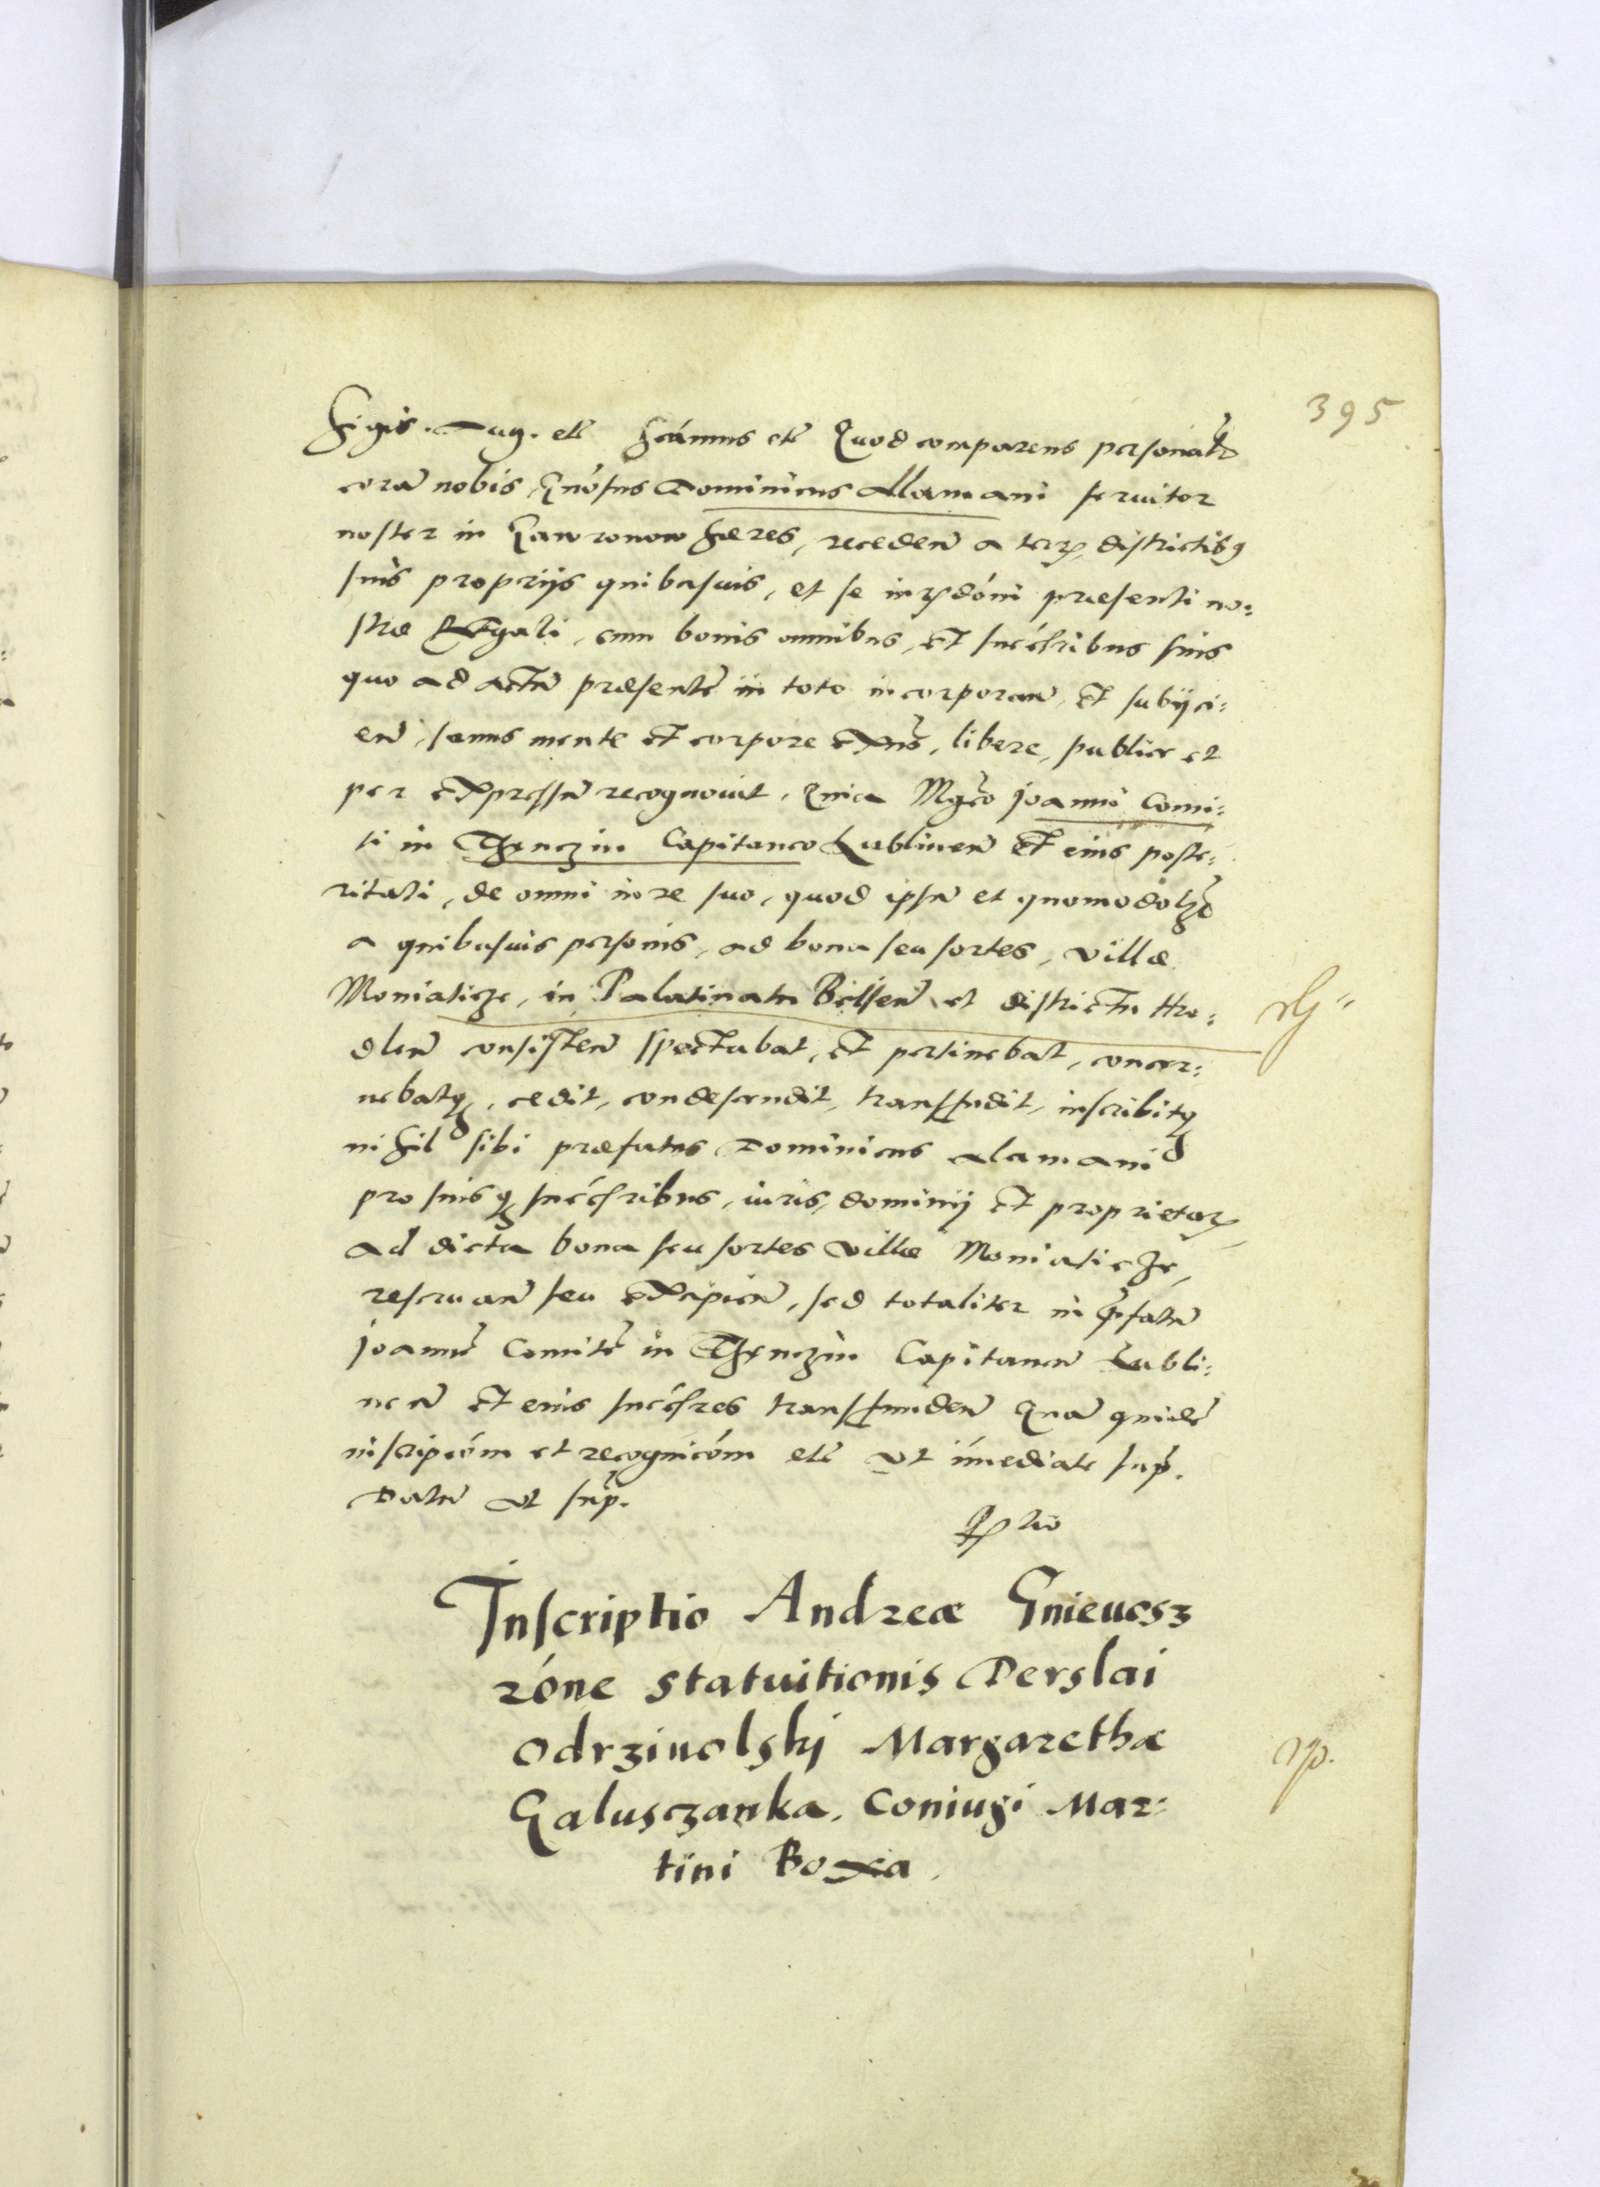 395
Sigis. Aug. etc̃ scímus etc̃ Quod comparens personalr̃
corã nobis, Gnósus Dominicus Allamani seruitor
noster in Gawronow hæres, recedeñ a terr. districtibq
suis proprijs quibusuis, et se iurᵹdóni præsenti no:
stræ Regali, cum bonis omnibus, et succ̃ribus suis
quo ad actũ præsentẽ in toto incorporañ, et subijci:
eñ, sanus mente et corpore exñs, libere, publice et
per expressũ recognouit. Quia Mgcõ Joanni Comi:
ti in Thenczin Capitaneo Lublineñ et eius poste:
ritati, de omni iure suo, quod ipsũ et quomodolꝫ
a quibusuis personis, ad bona seu sortes, villæ
Moniaticze, in Palatinatu Belseñ et districtu Hro:
dleñ consisteñ spectabat, et pertinebat, concer:
nebatq, cedit, condescendit, transfundit, inscribitq
nihil sibi præfatus Dominicus Alamani
pro suisq succ̃ribus, iuris, dominij et proprietat.
ad dicta bona seu sortes villæ Moniaticze,
reseruañ seu excipieñ, sed totaliter in p̃fatũ
Joannẽ Comitẽ in Thenczin Capitaneũ Lubli:
neñ et eius succ̃res transfundeñ Quã quidẽ
inscripcóm et recognicóm etc̃ vt iḿediate sup̃.
Datũ vt sup̃.
Inscriptio Andreæ Gnieuosz
róne statuitionis Derslai
Odrziuolskj Margarethæ
Galusczanka. Coniugi Mar:
tini Boxa.